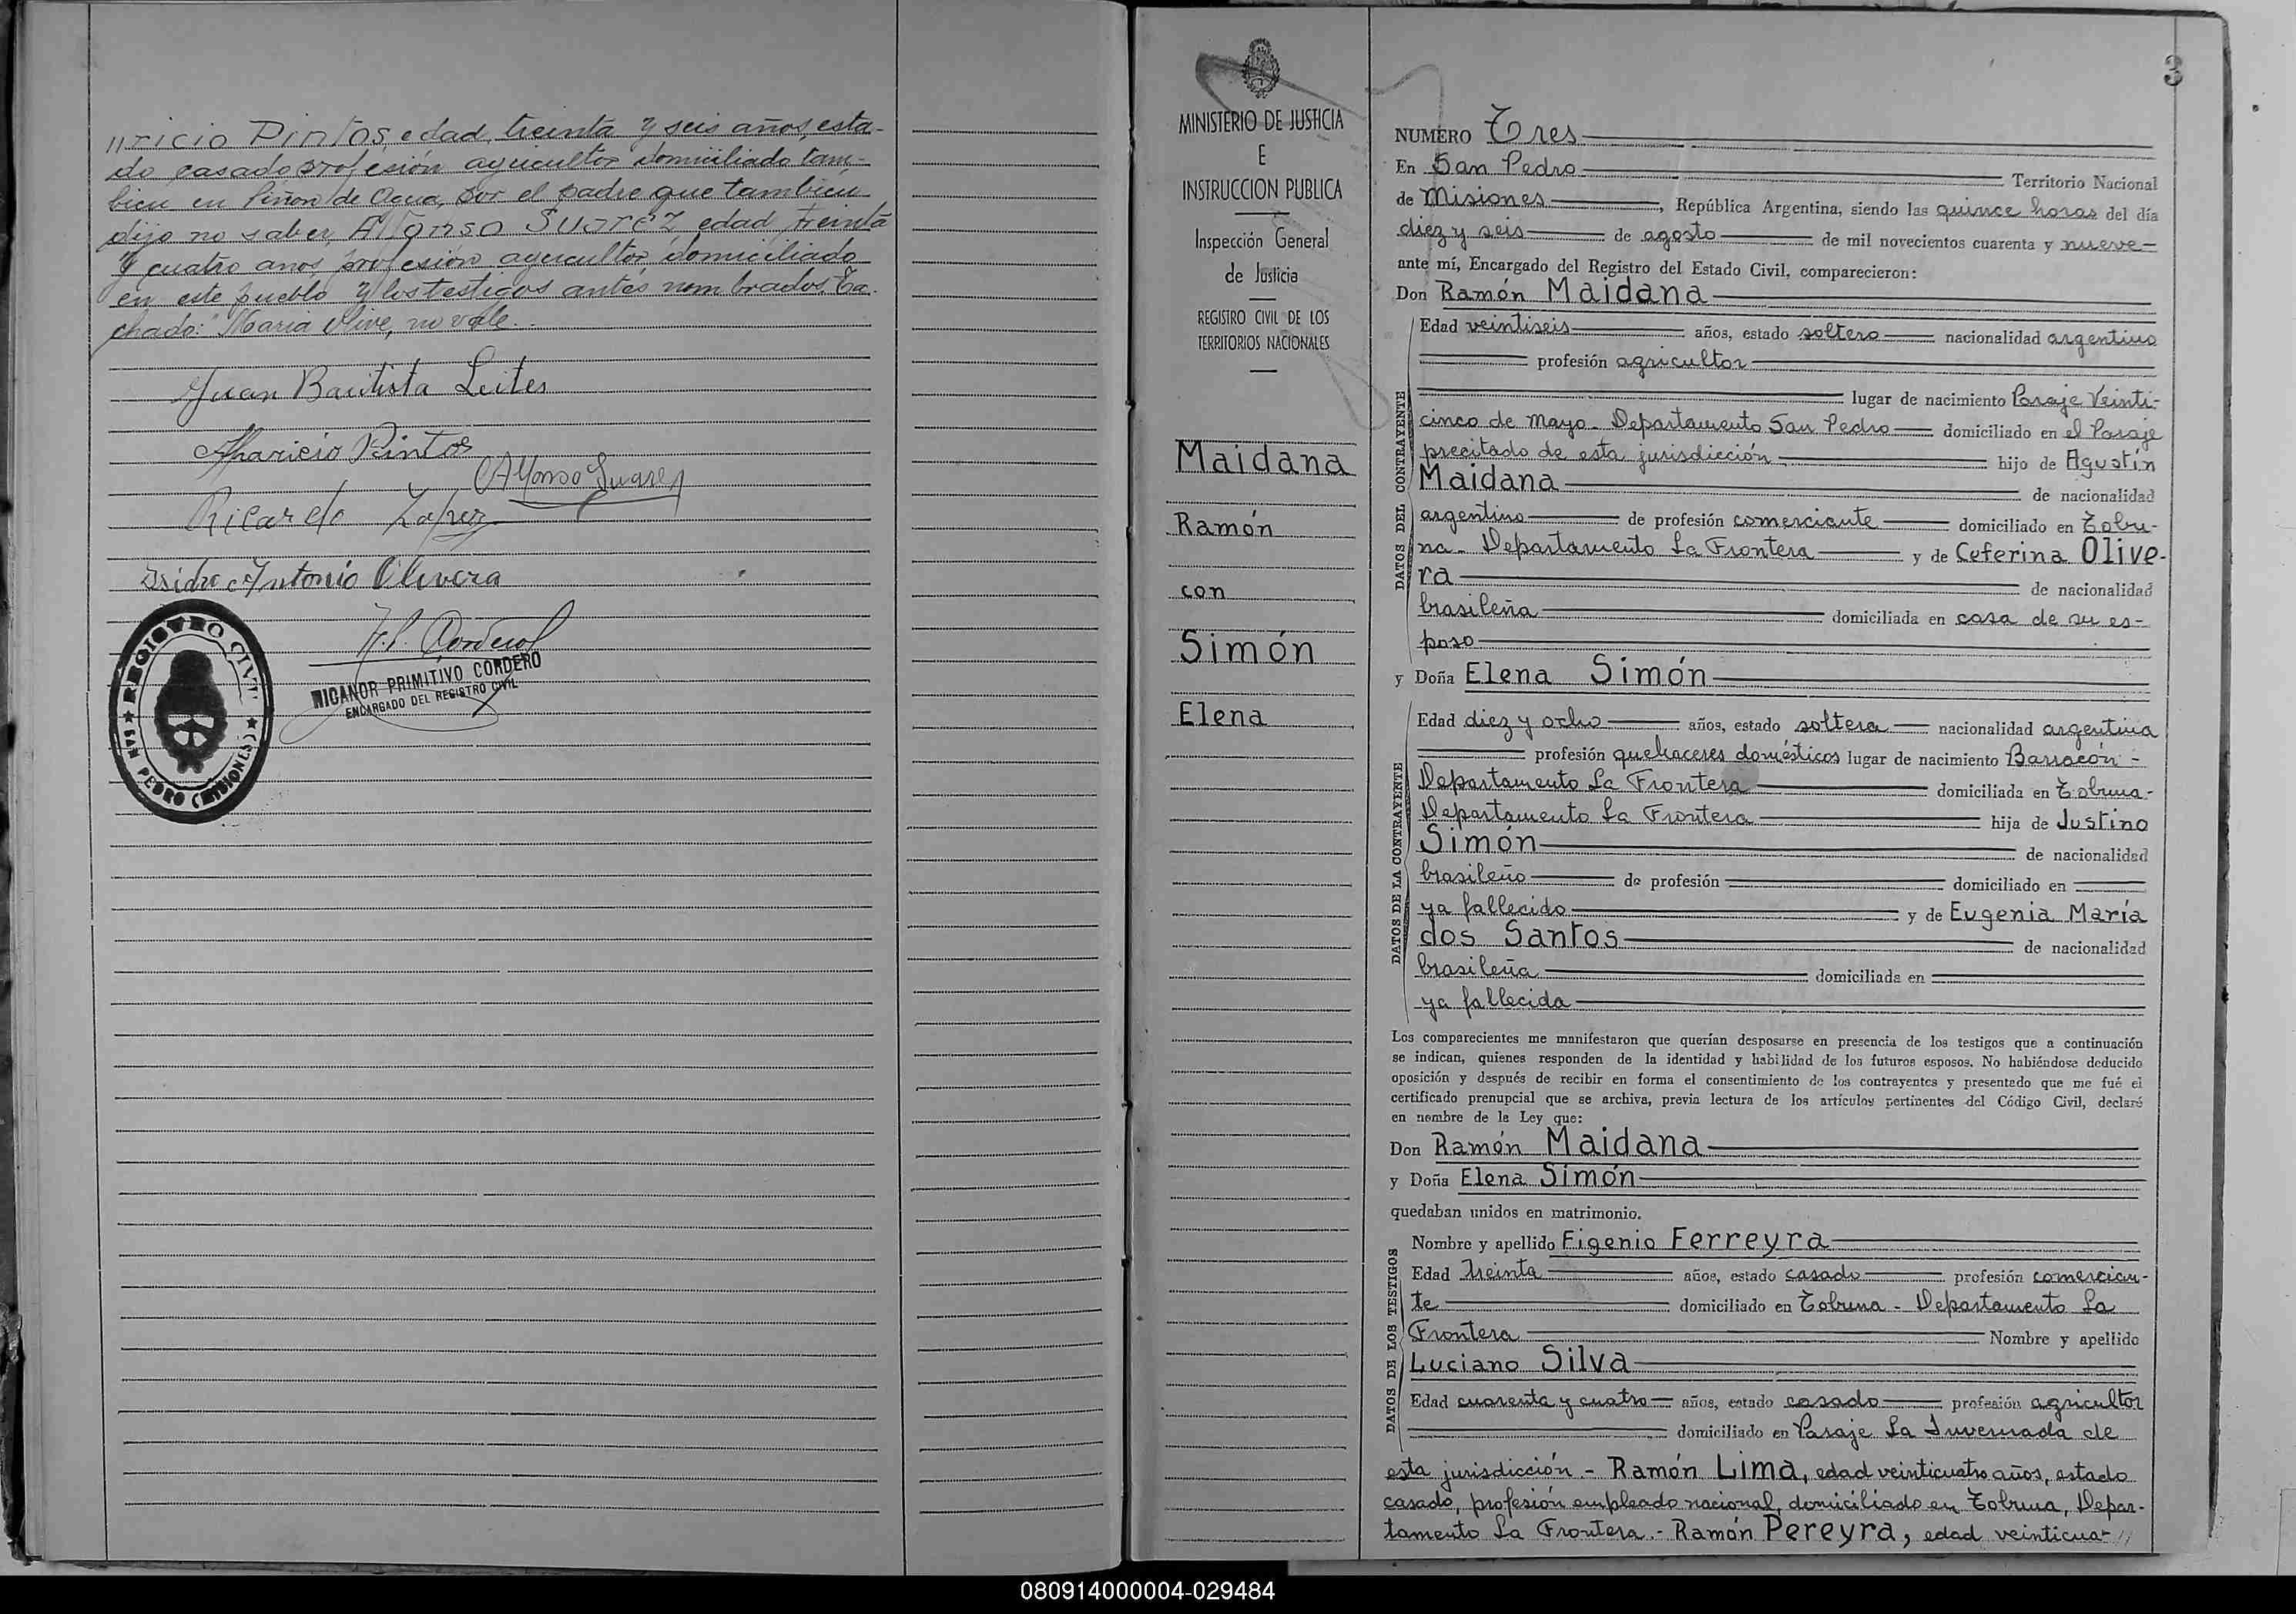 //ricio Pintos, edad, treinta y seis años, esta-
do casado profesión agricultor domiciliado tam-
bien en Piñon de Agua, por el padre que tambien
dijo no saber, Alfonso Suarez, edad, treinta
y cuatro anos, profesión agricultor domiciliado
en este pueblo y los testigos antes nombrados. Ta-
chado: "Maria Olive, no vale.
Juan Bautista Leites
Aparicio Pintos
Alfonso Suarez
Ricardo Lopez
Isidro Antonio Olivera
REGISTRO CIVIL
SAN PEDRO (MISIONES)
N.P. Cordero
NICANOR PRIMITIVO CORDERO
ENCARGADO DEL REGISTRO CIVIL
MINISTERIO DE JUSTICIA
E
INSTRUCCION PUBLICA
Inspección General
de Justicia
REGISTRO CIVIL DE LOS
TERRITORIOS NACIONALES
Maidana
Ramón
con
Simón
Elena
3
NUMERO Tres
En San Pedro Territorio Nacional
de Misiones, República Argentina, siendo las quince horas del día
diez y seis de agosto de mil novecientos cuarenta y nueve
ante mí, Encargado del Registro del Estado Civil, comparecieron:
Don Ramón Maidana
DATOS DEL CONTRAYENTE
Edad veintiseis años, estado soltero nacionalidad argentino
profesión agricultor
lugar de nacimiento Paraje Veinti-
cinco de Mayo - Departamento San Pedro domiciliado en el Paraje
precitado de esta jurisdicción hijo de Agustín
Maidana de nacionalidad
argentino de profesión comerciante domiciliado en Tobu-
na - Departamento La Frontera y de Ceferina Olive-
ra de nacionalidad
brasileña domiciliada en casa de su es-
poso
y Doña Elena Simón
DATOS DE LA CONTRAYENTE
Edad diez y ocho años, estado soltera nacionalidad argentina
profesión quehaceres domésticos lugar de nacimiento Barracón -
Departamento La Frontera domiciliada en Tobuna -
Departamento La Frontera hija de Justino
Simón de nacionalidad
brasileño de profesión domiciliado en
ya fallecido y de Eugenia María
dos Santos de nacionalidad
brasileña domiciliada en
ya fallecida
Los comparecientes me manifestaron que querían desposarse en presencia de los testigos que a continuación
se indican, quienes responden de la identidad y habilidad de los futuros esposos. No habiéndose deducido
oposición y después de recibir en forma el consentimiento de los contrayentes y presentado que me fué el
certificado prenupcial que se archiva, previa lectura de los artículos pertinentes del Código Civil, declaré
en nombre de la Ley que:
Don Ramón Maidana
y Doña Elena Simón
quedaban unidos en matrimonio.
DATOS DE LOS TESTIGOS
Nombre y apellido Eigenio Ferreyra
Edad treinta años, estado casado profesión comercian-
te domiciliado en Tobuna - Departamento La
Frontera Nombre y apellido
Luciano Silva
Edad cuarenta y cuatro años, estado casado profesión agricultor
domiciliado en Paraje La Invernada de
esta jurisdicción - Ramón Lima, edad veinticuatro años, estado
casado, profesión empleado nacional, domiciliado en Tobuna, Depar-
tamento La Frontera.- Ramón Pereyra, edad veinticua- //
080914000004-029484